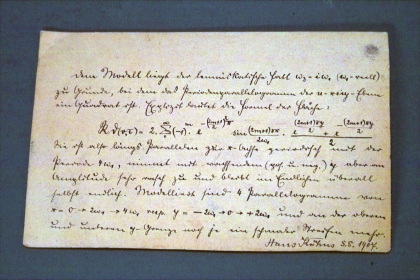 Dem Modell liegt der lemniskatische Fall ω₂ = iω₁ (ω₁ = reell)
zu Grunde, bei dem das Periodenparallelogramm der u = x+iy-Ebene
ein Quadrat ist. Explizit lautet die Formel der Fläche:
R ϑ(v,τ) = 2. Σ (-1)^m . e^ sin (2m+1)πx / 2ω₁ . e^ + e^ / 2
Sie ist also längs Parallelen zur x-Achse periodisch mit der
Periode 4ω₁, nimmt mit wachsendem (pos. u. neg.) y aber an
Amplitude sehr rasch zu und bleibt im Endlichen überall
selbst endlich. Modelliert sind 4 Parallelogramme von
x = 0 → 2ω₁ → 4ω₁ resp. y = -2ω₁ → 0 → +2ω₁ und an der oberen
und unteren y-Grenze noch je ein schmaler Streifen mehr.
Hans Kühns S.S. 1907.